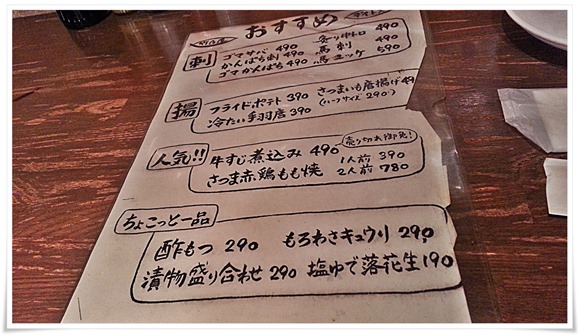 おすすめ
刺
ゴマサバ 490 炙り中トロ 490
かんぱち刺 490 馬刺 490
ゴマかんぱち 490 馬ユッケ 590
揚
フライドポテト 390 さつまいも唐揚げ 49
冷たい手羽唐 390 (ハーフサイズ 290)
人気!! 売り切れ御免!
牛すじ煮込み 490 1人前 390
さつま赤鶏もも焼 2人前 780
ちょこっと一品
酢もつ 290 もろわさキュウリ 290
漬物盛り合わせ 290 塩ゆで落花生 190